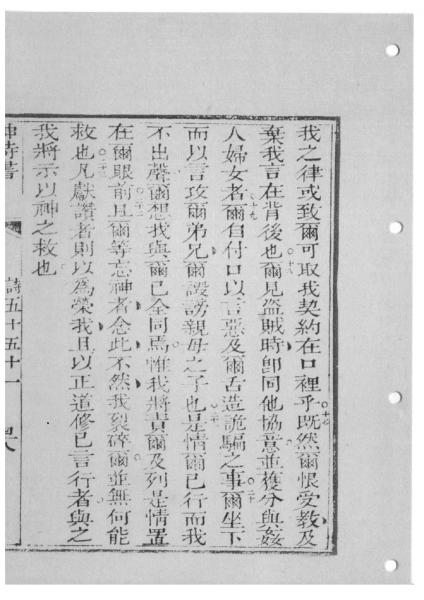 我之律或致爾可取我契約在口裡乎○十七既然爾恨受教及
棄我言在背後也○十八爾見盜賊時卽同他協意並獲分與姦
人婦女者○十九爾自付口以言惡及爾舌造詭騙之事○二十爾坐下
而以言攻爾弟兄爾譭謗親母之子也○二一是情爾已行而我
不出聲爾想我與爾已全同焉惟我將責爾及列是情置
在爾眼前○二二且爾等忘神者念此不然我裂碎爾並無何能
救也○二三凡獻讚者則以為榮我且以正道修已言行者與之
我將示以神之救也
神詩書 詩五十五十一